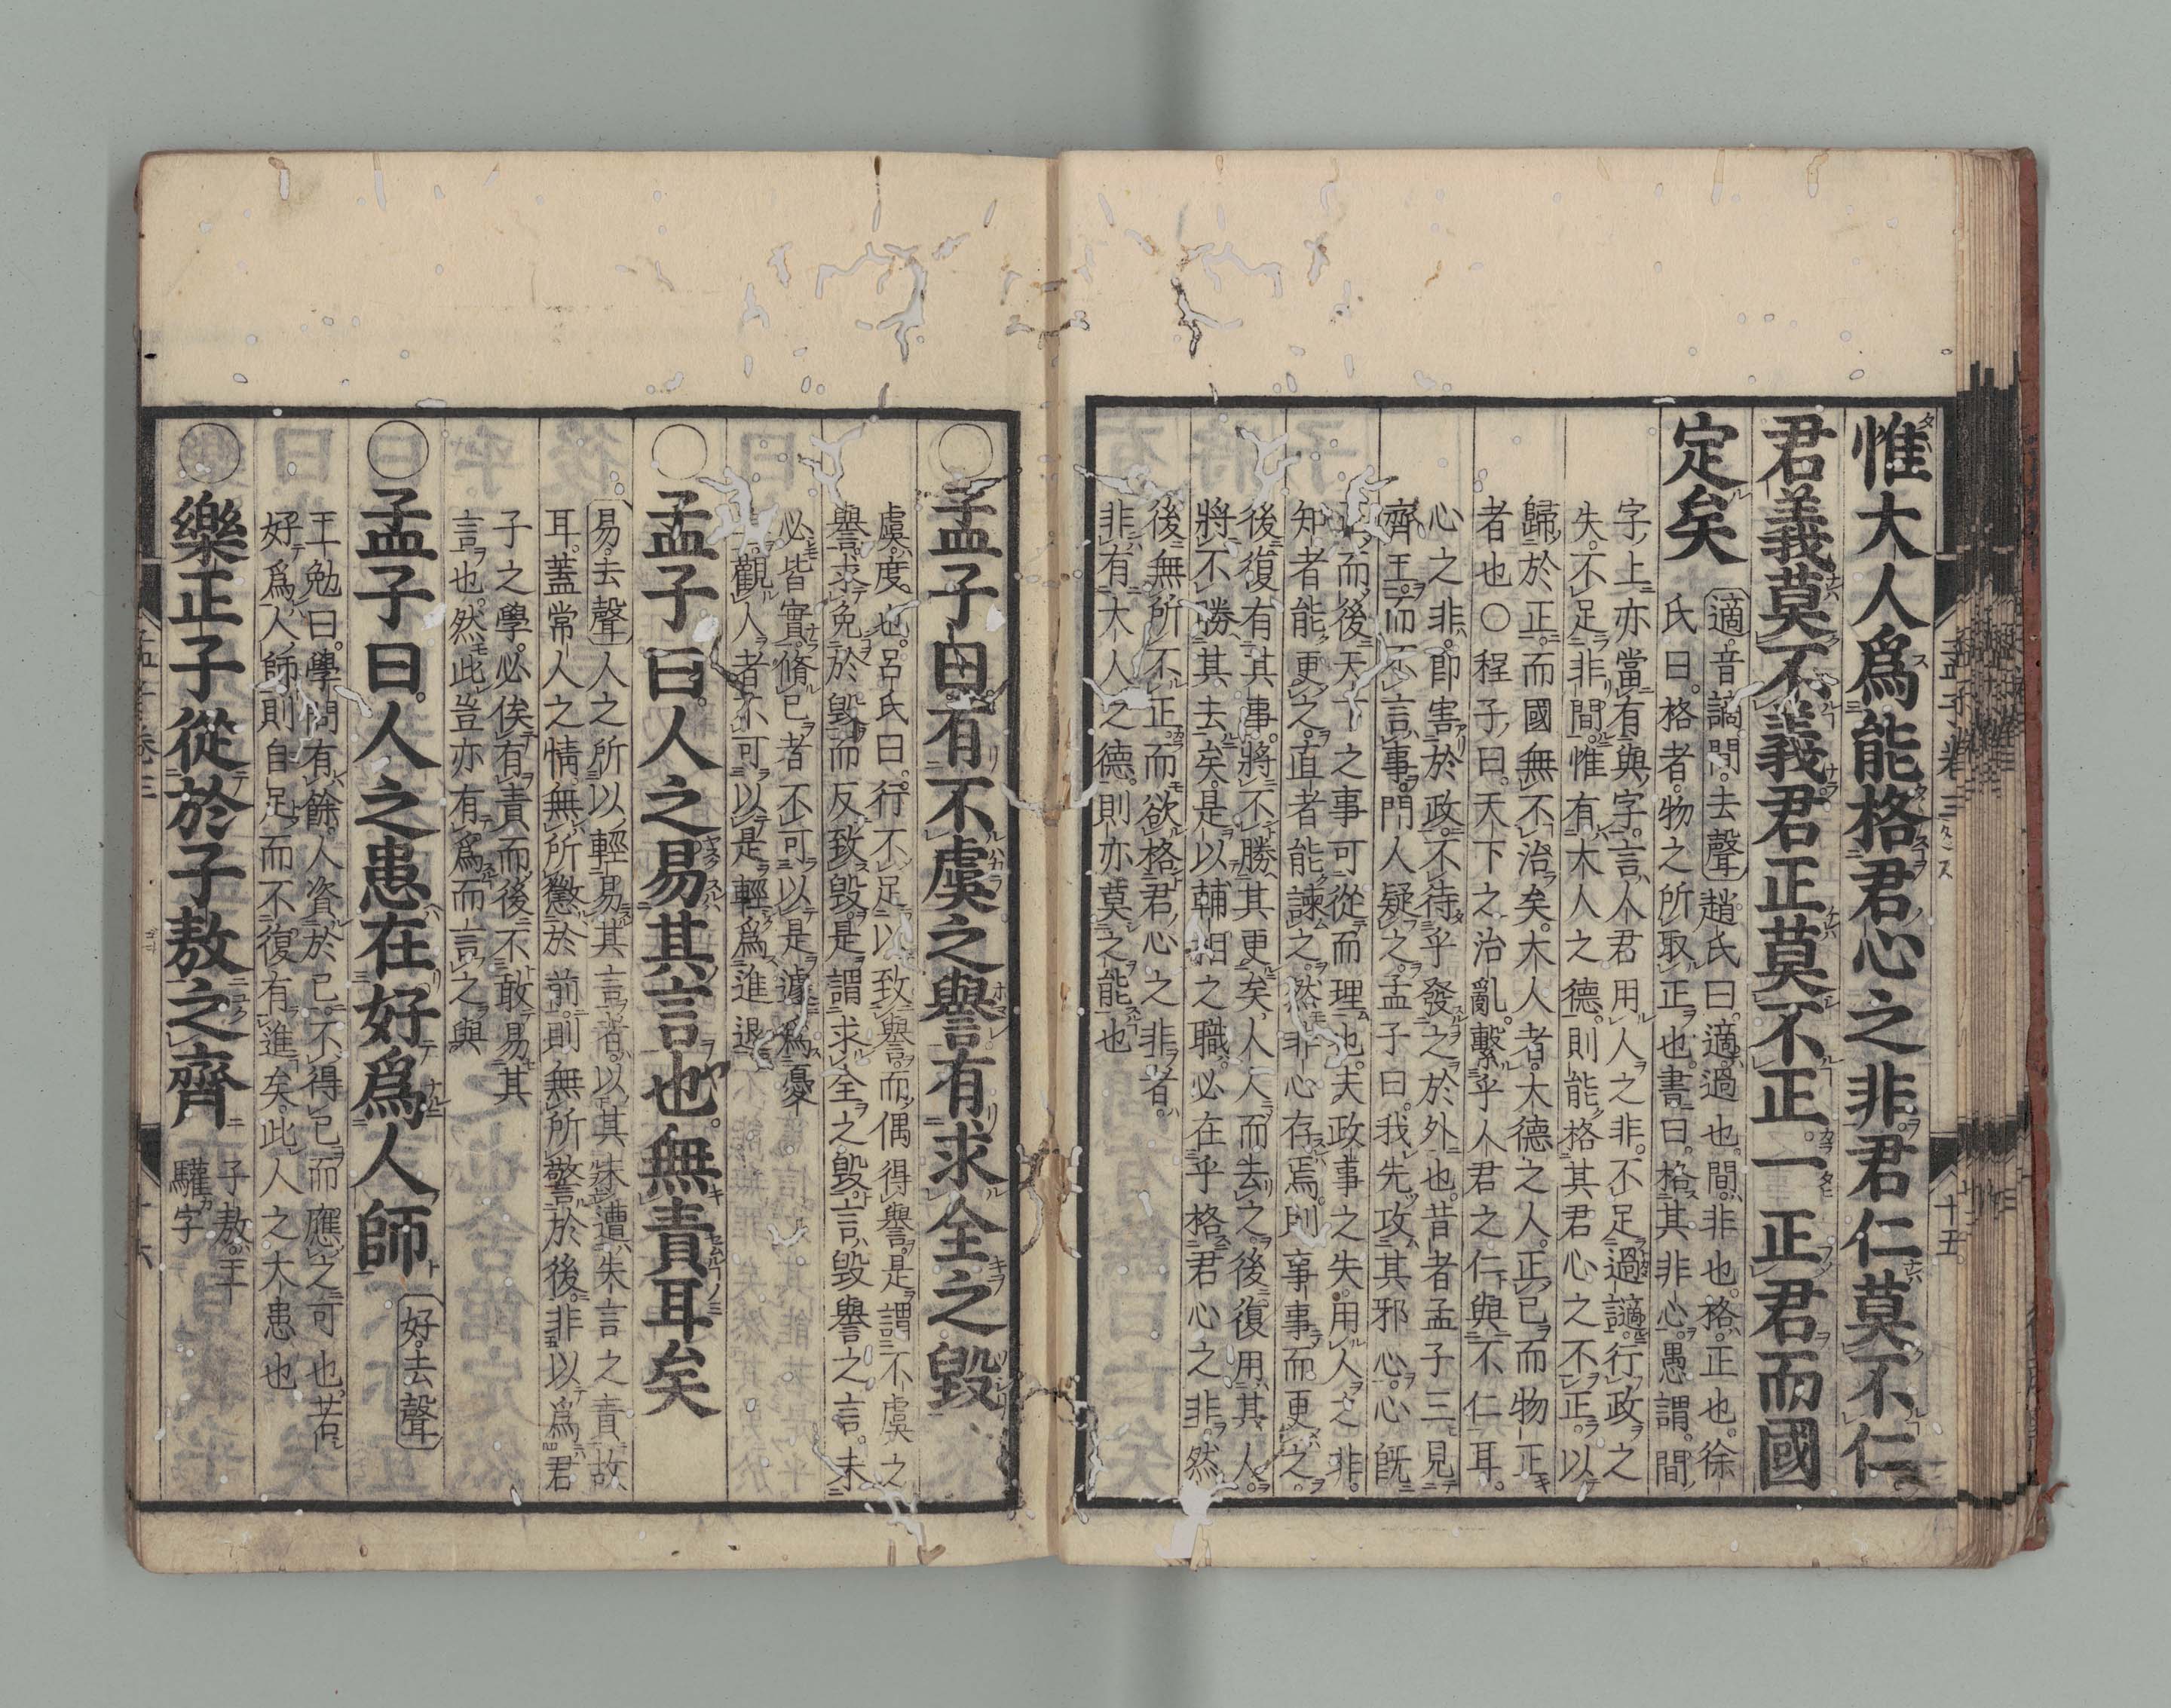 惟大人爲能格君心之非。君仁莫不仁。
君義莫不義君正莫不正。一正君而國
定矣
適。音謫。間。去聲 趙氏曰。適過也。間非也。格。正也。徐
氏曰。格者。物之所取正也。書曰。格其非心。愚謂。間
字上亦當有與字。言人君用人之非。不足過謫。行政之
失。不足非間。惟有大人之德。則能格其君心之不正。以
歸於正。而國無不治矣。大人者。大德之人。正己而物正
者也○程子曰。天下之治亂。繫乎人君之仁與不仁耳。
心之非。即害於政。不待乎發之於外也。昔者孟子三見
齊王。而不言事。門人疑之。孟子曰。我先攻其邪心。心旣
而後天下之事可從而理也。夫政事之失。用人之非。
知者能更之。直者能諫之。然非心存焉。則事事而更之。
後復有其事。將不勝其更矣。人人而去之。後復用其人。
將不勝其去矣。是以輔相之職。必在乎格君心之非。然
後無所不正。而欲格君心之非者。
非有大人之德。則亦莫之能也
孟子卷三
十五
○孟子曰。有不虞之譽有求全之毀
虞。度也。呂氏曰。行不足以致譽。而偶得譽。是謂不虞之
譽。求免於毀。而反致毀。是謂求全之毀。言毀譽之言。未
必皆實。脩己者不可以是遽爲憂
觀人者不可以是輕爲進退
○孟子曰。人之易其言也。無責耳矣
易。去聲 人之所以輕易其言者。以其未遭失言之責故
耳。蓋常人之情。無所懲於前。則無所警於後。非以爲君
子之學。必俟有責而後不敢易其
言也。然此豈亦有爲而言之與
○孟子曰。人之患在好爲人師
好。去聲
王勉曰。學問有餘。人資於己。不得已而應之可也。若
好爲人師。則自足而不復有進矣。此人之大患也
○樂正子從於子敖之齊
子敖。王
驩字